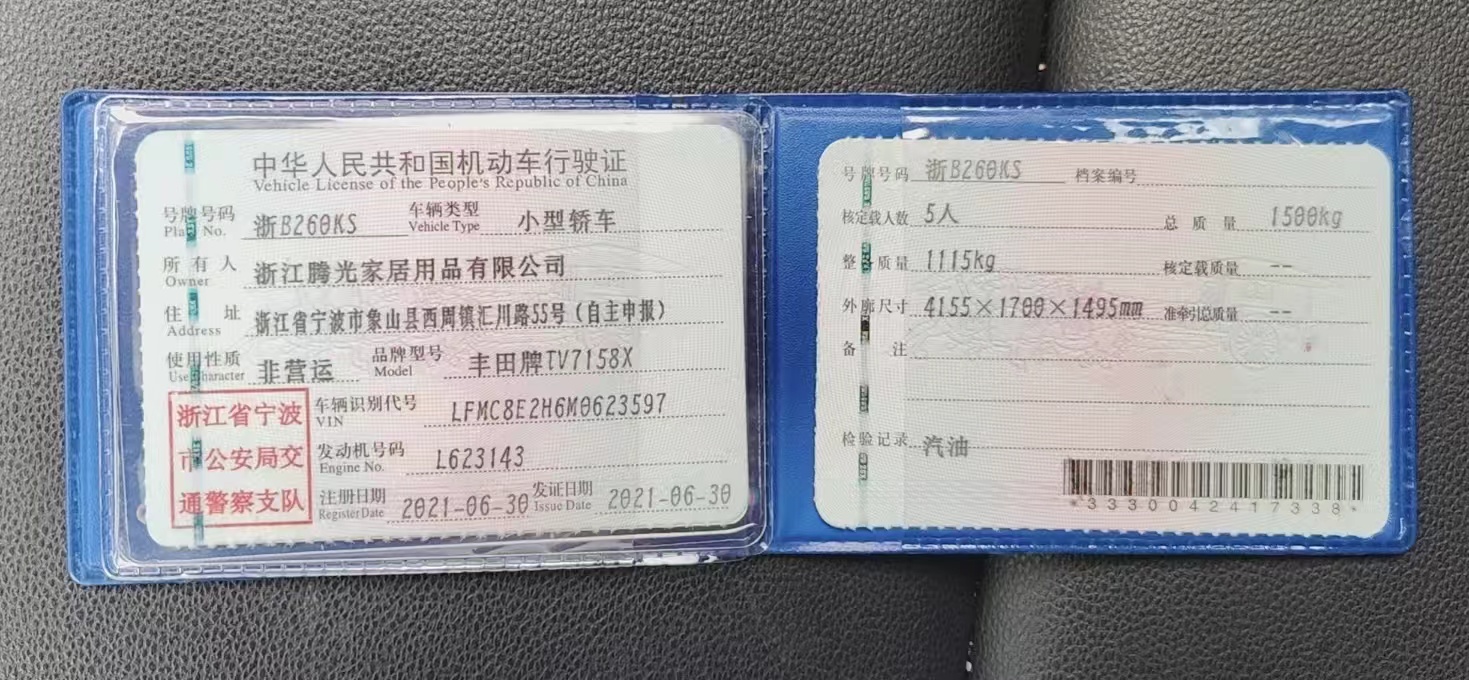 中华人民共和国机动车行驶证
Vehicle License of the People's Republic of China
号牌号码 浙B260KS 车辆类型 小型轿车
Plate No. Vehicle Type
所有人 浙江腾光家居用品有限公司
Owner
住址 浙江省宁波市象山县西周镇汇川路55号(自主申报)
Address
使用性质 非营运 品牌型号 丰田牌TV7158X
Use Character Model
浙江省宁波
市公安局交
通警察支队
车辆识别代号 LFMC8E2H6M0623597
VIN
发动机号码 L623143
Engine No.
注册日期 2021-06-30 发证日期 2021-06-30
Register Date Issue Date
号牌号码 浙B260KS 档案编号
核定载人数 5人 总质量 1500kg
整备质量 1115kg 核定载质量 --
外廓尺寸 4155×1700×1495mm 准牵引总质量 --
备注
检验记录 汽油
*3330042417338*